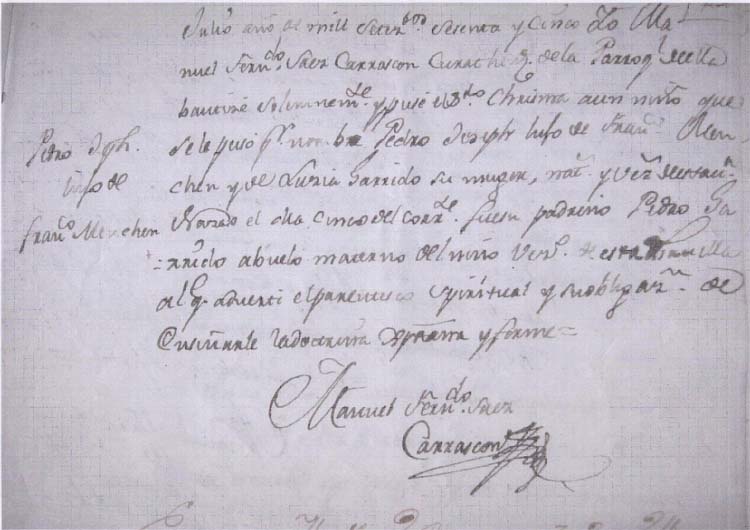 Julio año de mill Setez.tos Sesenta y Cinco Yo Ma
nuel Fern.do Saez Carrascon Cura the.te de la Parroq.l de ella
bautizé solemnem.te y puse el S.to Chrisma a un niño que
Pedro Jph.
hijo de
Fran.co Menchen
se le puso p.r nombre Pedro Joseph hijo de Fran.co Men
chen y de Luzia Garrido su muger, nat.s y vez.s de esta
el dia cinco del corr.te fue su padrino Pedro Ga
rrido abuelo materno del niño vez.o de esta villa
al q. adverti el parentesco spiritual y su obligaz.n de
enseñarle la doctrina Xpriana y firme =
Manuel Fern.do Saez
Carrascon